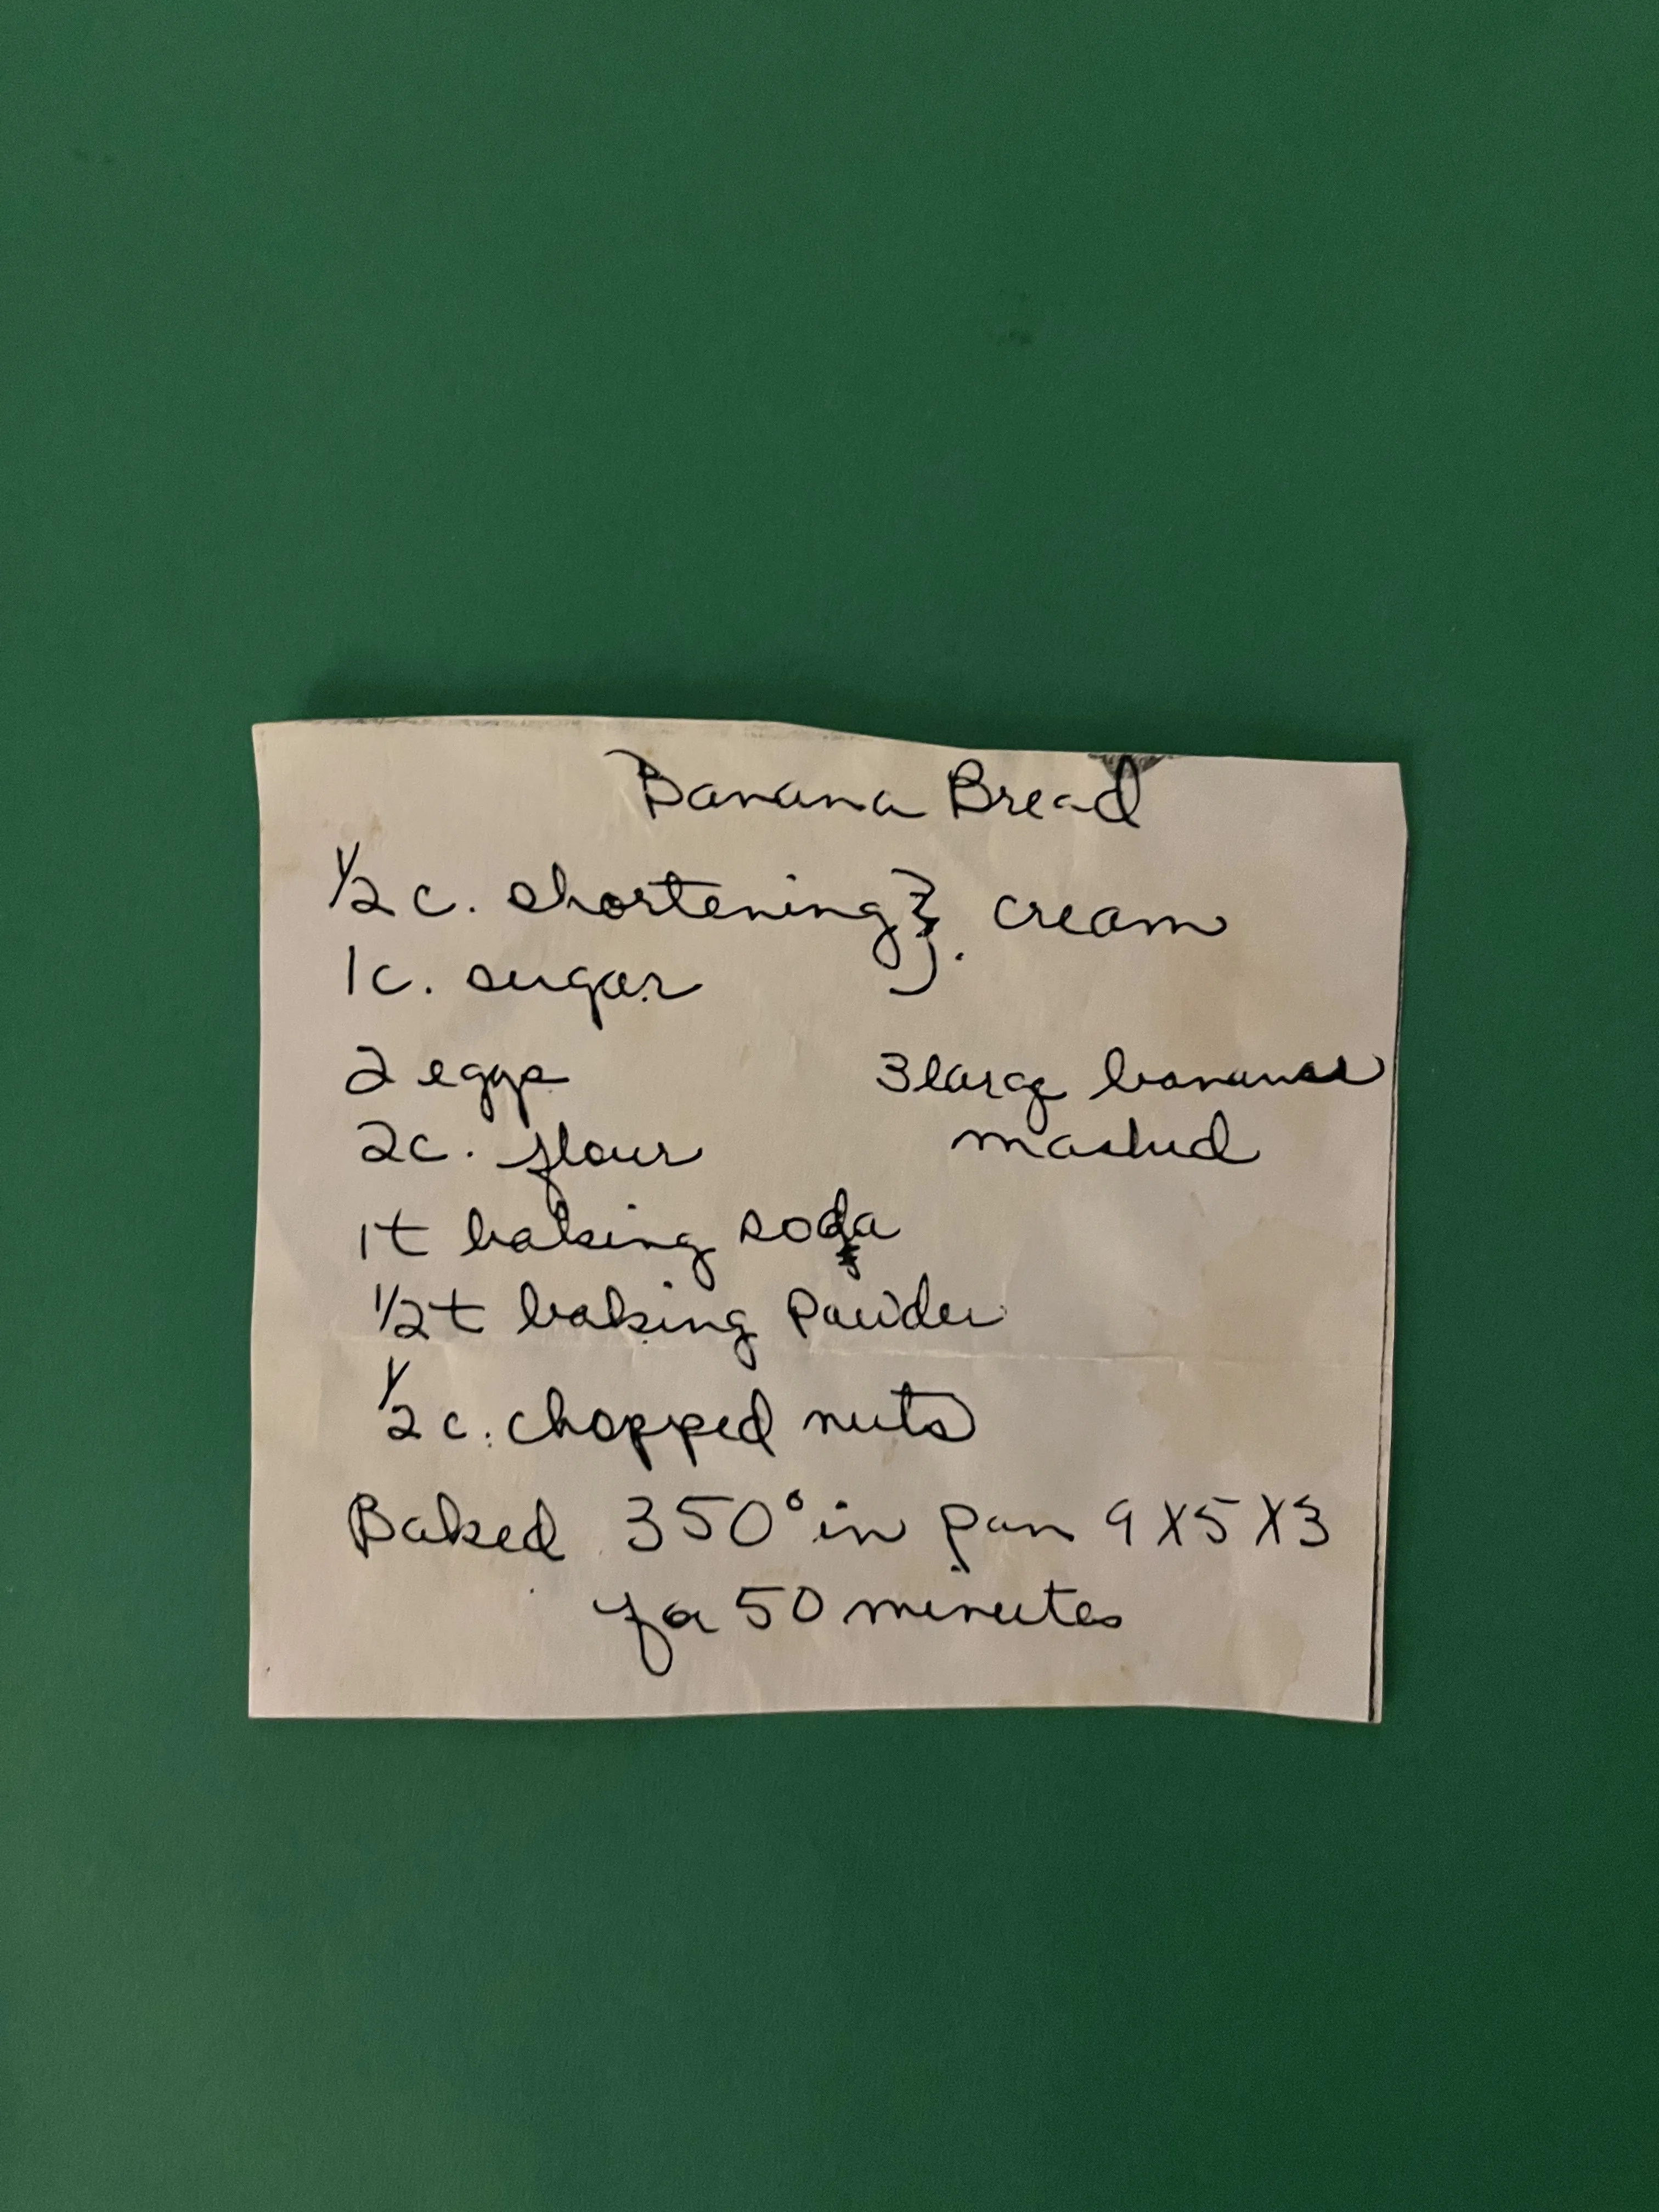 Banana Bread
1/2 c. shortening } cream
1 c. sugar
2 eggs 3 large bananas
2 c. flour mashed
1 t baking soda
1/2 t baking powder
1/2 c. chopped nuts
Baked 350° in pan 9 X 5 X 3
for 50 minutes